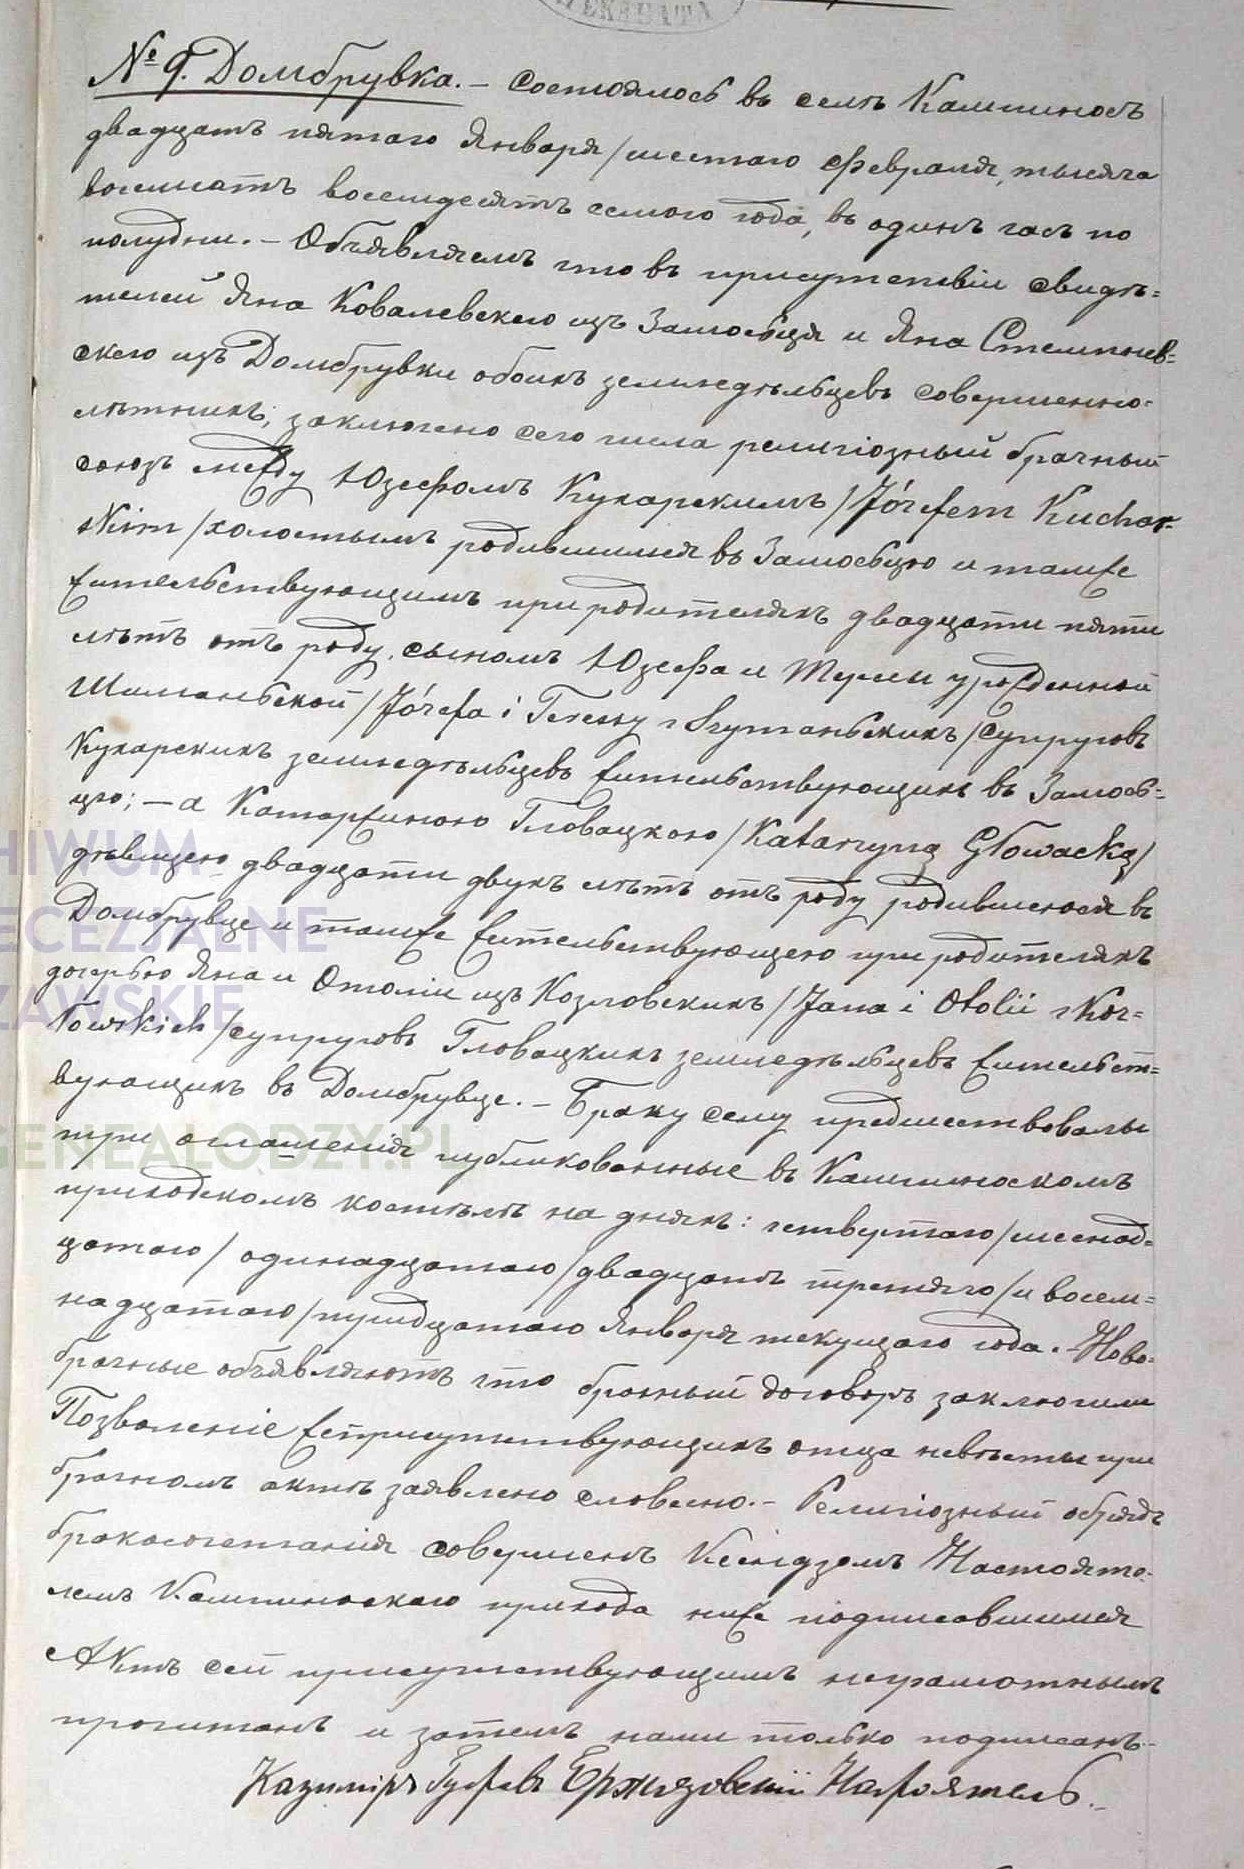 ДЕКАНАТА
№ 9. Домбрувка. – Состоялось въ селѣ Кампиносъ
двадцать пятаго Января /шестаго Февраля, тысяча
восемсотъ восемдесятъ семого года, въ одинъ часъ по
полудни. – Объявляемъ что въ присутствіи свидѣ=
телей Яна Ковалевскего изъ Замосьця и Яна Стемпнев=
скего изъ Домбрувки обоихъ земледѣльцевъ совершенно-
лѣтнихъ, заключено сего числа религіозный брачный
союзъ между Юзефомъ Кухарскимъ /Józefem Kuchar=
skim/ холостымъ родившимся въ Замосьцю и тамже
жительствующимъ при родителяхъ двадцати пяти
лѣтъ отъ роду, сыномъ Юзефа и Тересы урожденной
Шиманьской /Józefa i Teressy z Szymańskихъ/ супруговъ
Кухарскихъ земледѣльцевъ жительствующихъ въ Замось=
цю; – а Катаржиною Гловацкою /Katarzyną Głowacką/
дѣвицею двадцати двухъ лѣтъ отъ роду родившеюся въ
Домбрувце и тамже жительствующею при родителяхъ
дочерью Яна и Отоліи изъ Козловскихъ /Jana i Otolii z Koz=
łowskich/ супруговъ Гловацкихъ земледѣльцевъ жительст=
вующихъ въ Домбрувце. – Браку сему предшествовалы
три оглашенія публикованные въ Кампиноскомъ
приходскомъ костѣлѣ на дняхъ: четвертаго /шеснад=
цатаго/ одинадцатаго /двадцать третяго/ и восем=
надцатаго /тридцатаго Января текущаго года. – Ново-
брачные объявляютъ что брачный договоръ заключили
Позволеніе жеприсутствующихъ отца невѣсты при
брачномъ актѣ заявлено словесно. – Религіозный обрядъ
бракосочетанія совершенъ Ксендзомъ Настояте-
лемъ Кампиноскаго прихода ниже подписавшимся
Актъ сей присутствующимъ неграмотнымъ
прочитанъ и затемъ нами только подписанъ –
Казимиръ Ержязовскій Настоятель.
ARCHIWUM
DIECEZJALNE
WARSZAWSKIE
GENEALODZY.PL